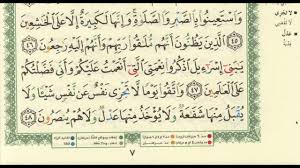 وَٱسْتَعِينُوا۟ بِٱلصَّبْرِ وَٱلصَّلَوٰةِ وَإِنَّهَا لَكَبِيرَةٌ إِلَّا عَلَى ٱلْخَٰشِعِينَ
٤٥ ٱلَّذِينَ يَظُنُّونَ أَنَّهُم مُّلَٰقُوا۟ رَبِّهِمْ وَأَنَّهُمْ إِلَيْهِ رَٰجِعُونَ ٤٦
يَٰبَنِىٓ إِسْرَٰٓءِيلَ ٱذْكُرُوا۟ نِعْمَتِىَ ٱلَّتِىٓ أَنْعَمْتُ عَلَيْكُمْ وَأَنِّى فَضَّلْتُكُمْ
عَلَى ٱلْعَٰلَمِينَ ٤٧ وَٱتَّقُوا۟ يَوْمًا لَّا تَجْزِى نَفْسٌ عَن نَّفْسٍ شَيْـًٔا وَلَا
يُقْبَلُ مِنْهَا شَفَٰعَةٌ وَلَا يُؤْخَذُ مِنْهَا عَدْلٌ وَلَا هُمْ يُنصَرُونَ ٤٨
٧
لا تجزي
عدل